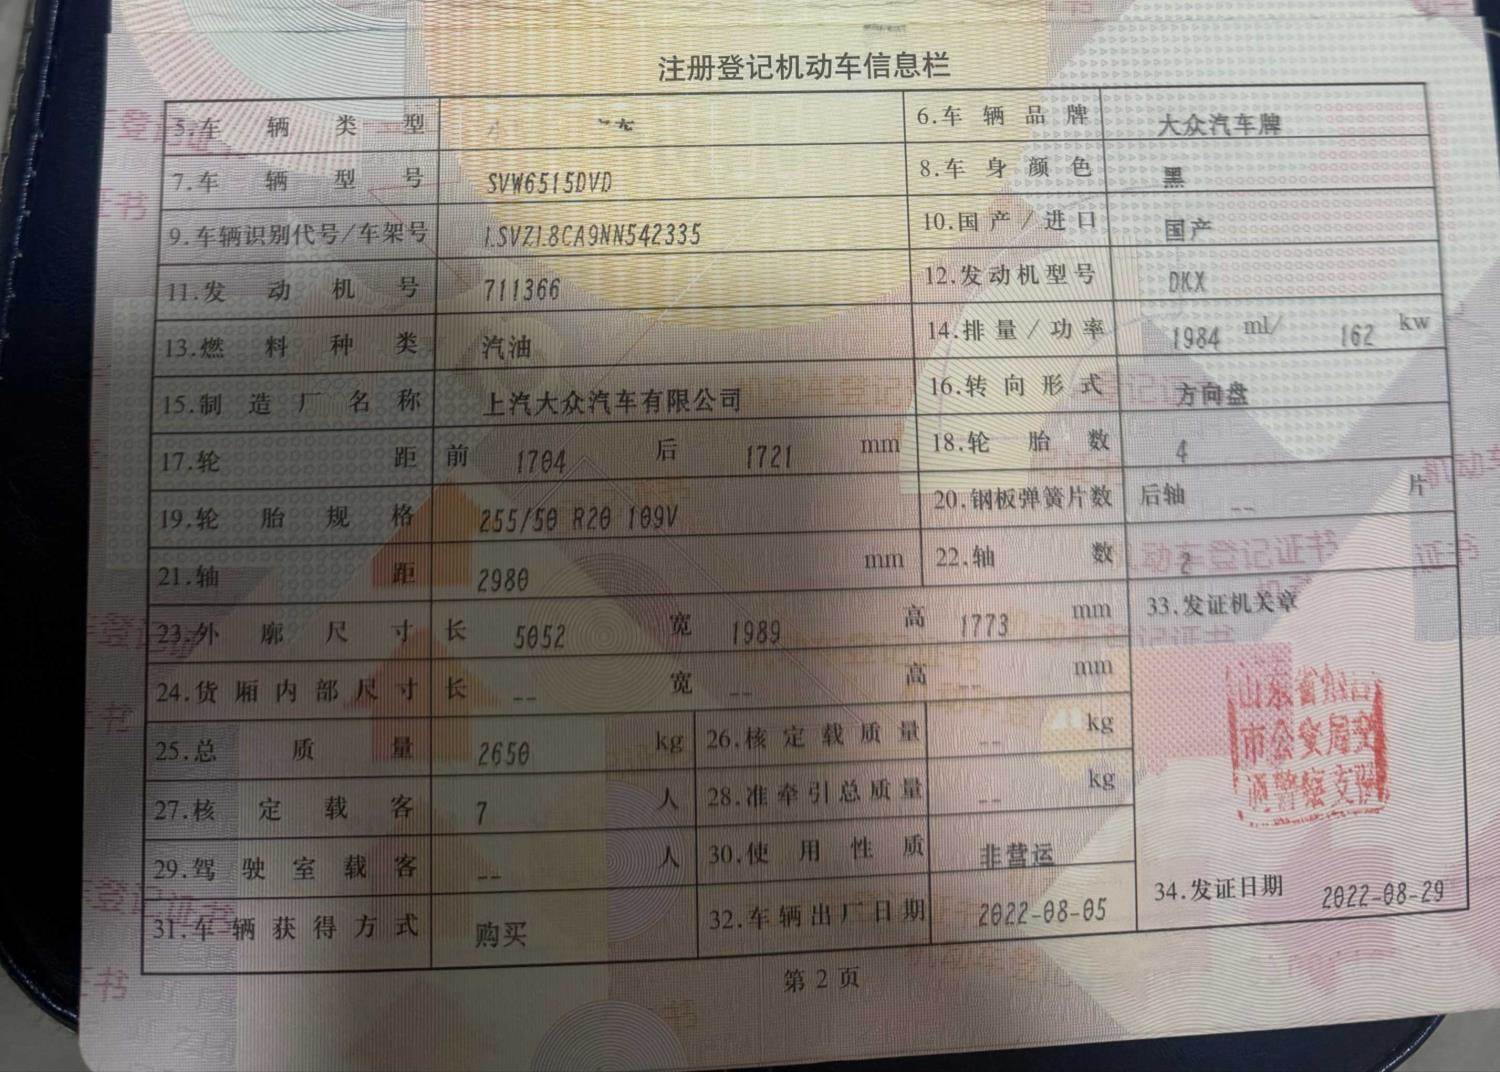 注册登记机动车信息栏
5.车辆类型 6.车辆品牌 大众汽车牌
7.车辆型号 SVW6515DVD 8.车身颜色 黑
9.车辆识别代号/车架号 LSVZL8CA9NN542335 10.国产/进口 国产
11.发动机号 711366 12.发动机型号 DKX
13.燃料种类 汽油 14.排量/功率 1984 ml/ 162 kw
15.制造厂名称 上汽大众汽车有限公司 16.转向形式 方向盘
17.轮距 前 1704 后 1721 mm 18.轮胎数 4
19.轮胎规格 255/50 R20 109V 20.钢板弹簧片数 后轴 -- 片
21.轴距 2980 mm 22.轴数 2
23.外廓尺寸 长 5052 宽 1989 高 1773 mm 33.发证机关章
24.货厢内部尺寸 长 -- 宽 -- 高 -- mm
25.总质量 2650 kg 26.核定载质量 -- kg
27.核定载客 7 人 28.准牵引总质量 -- kg
29.驾驶室载客 -- 人 30.使用性质 非营运
31.车辆获得方式 购买 32.车辆出厂日期 2022-08-05 34.发证日期 2022-08-29
山东省烟台
市公安局交
通警察支队
第2页